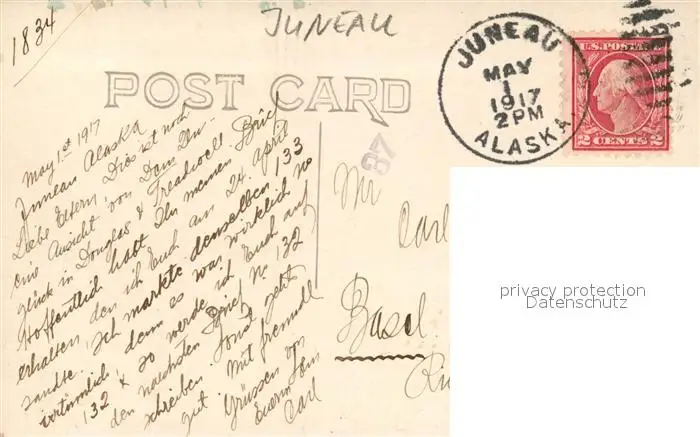 1834
JUNEAU
POST CARD
JUNEAU
MAY
1
1917
2 PM
ALASKA
U.S. POSTAGE
2 CENTS 2
87
May 1st 1917
Juneau Alaska
Liebe Eltern, Dies ist noch
eine Ansicht von Dem Un-
glück in Douglas & Treadwell
Hoffentlich habt Ihr meinen Brief
erhalten den ich Euch am 24. April
sandte. Ich markte denselben 133
irrtümlich, denn es war wirklich No
132 & so werde ich Euch auf
den nächsten Brief No 132
schreiben. Sonst geht's
gut. Mit freundl
Grüssen von
Euerm Sohn
Carl
Mr
Carl
Basel.
privacy protection
Datenschutz